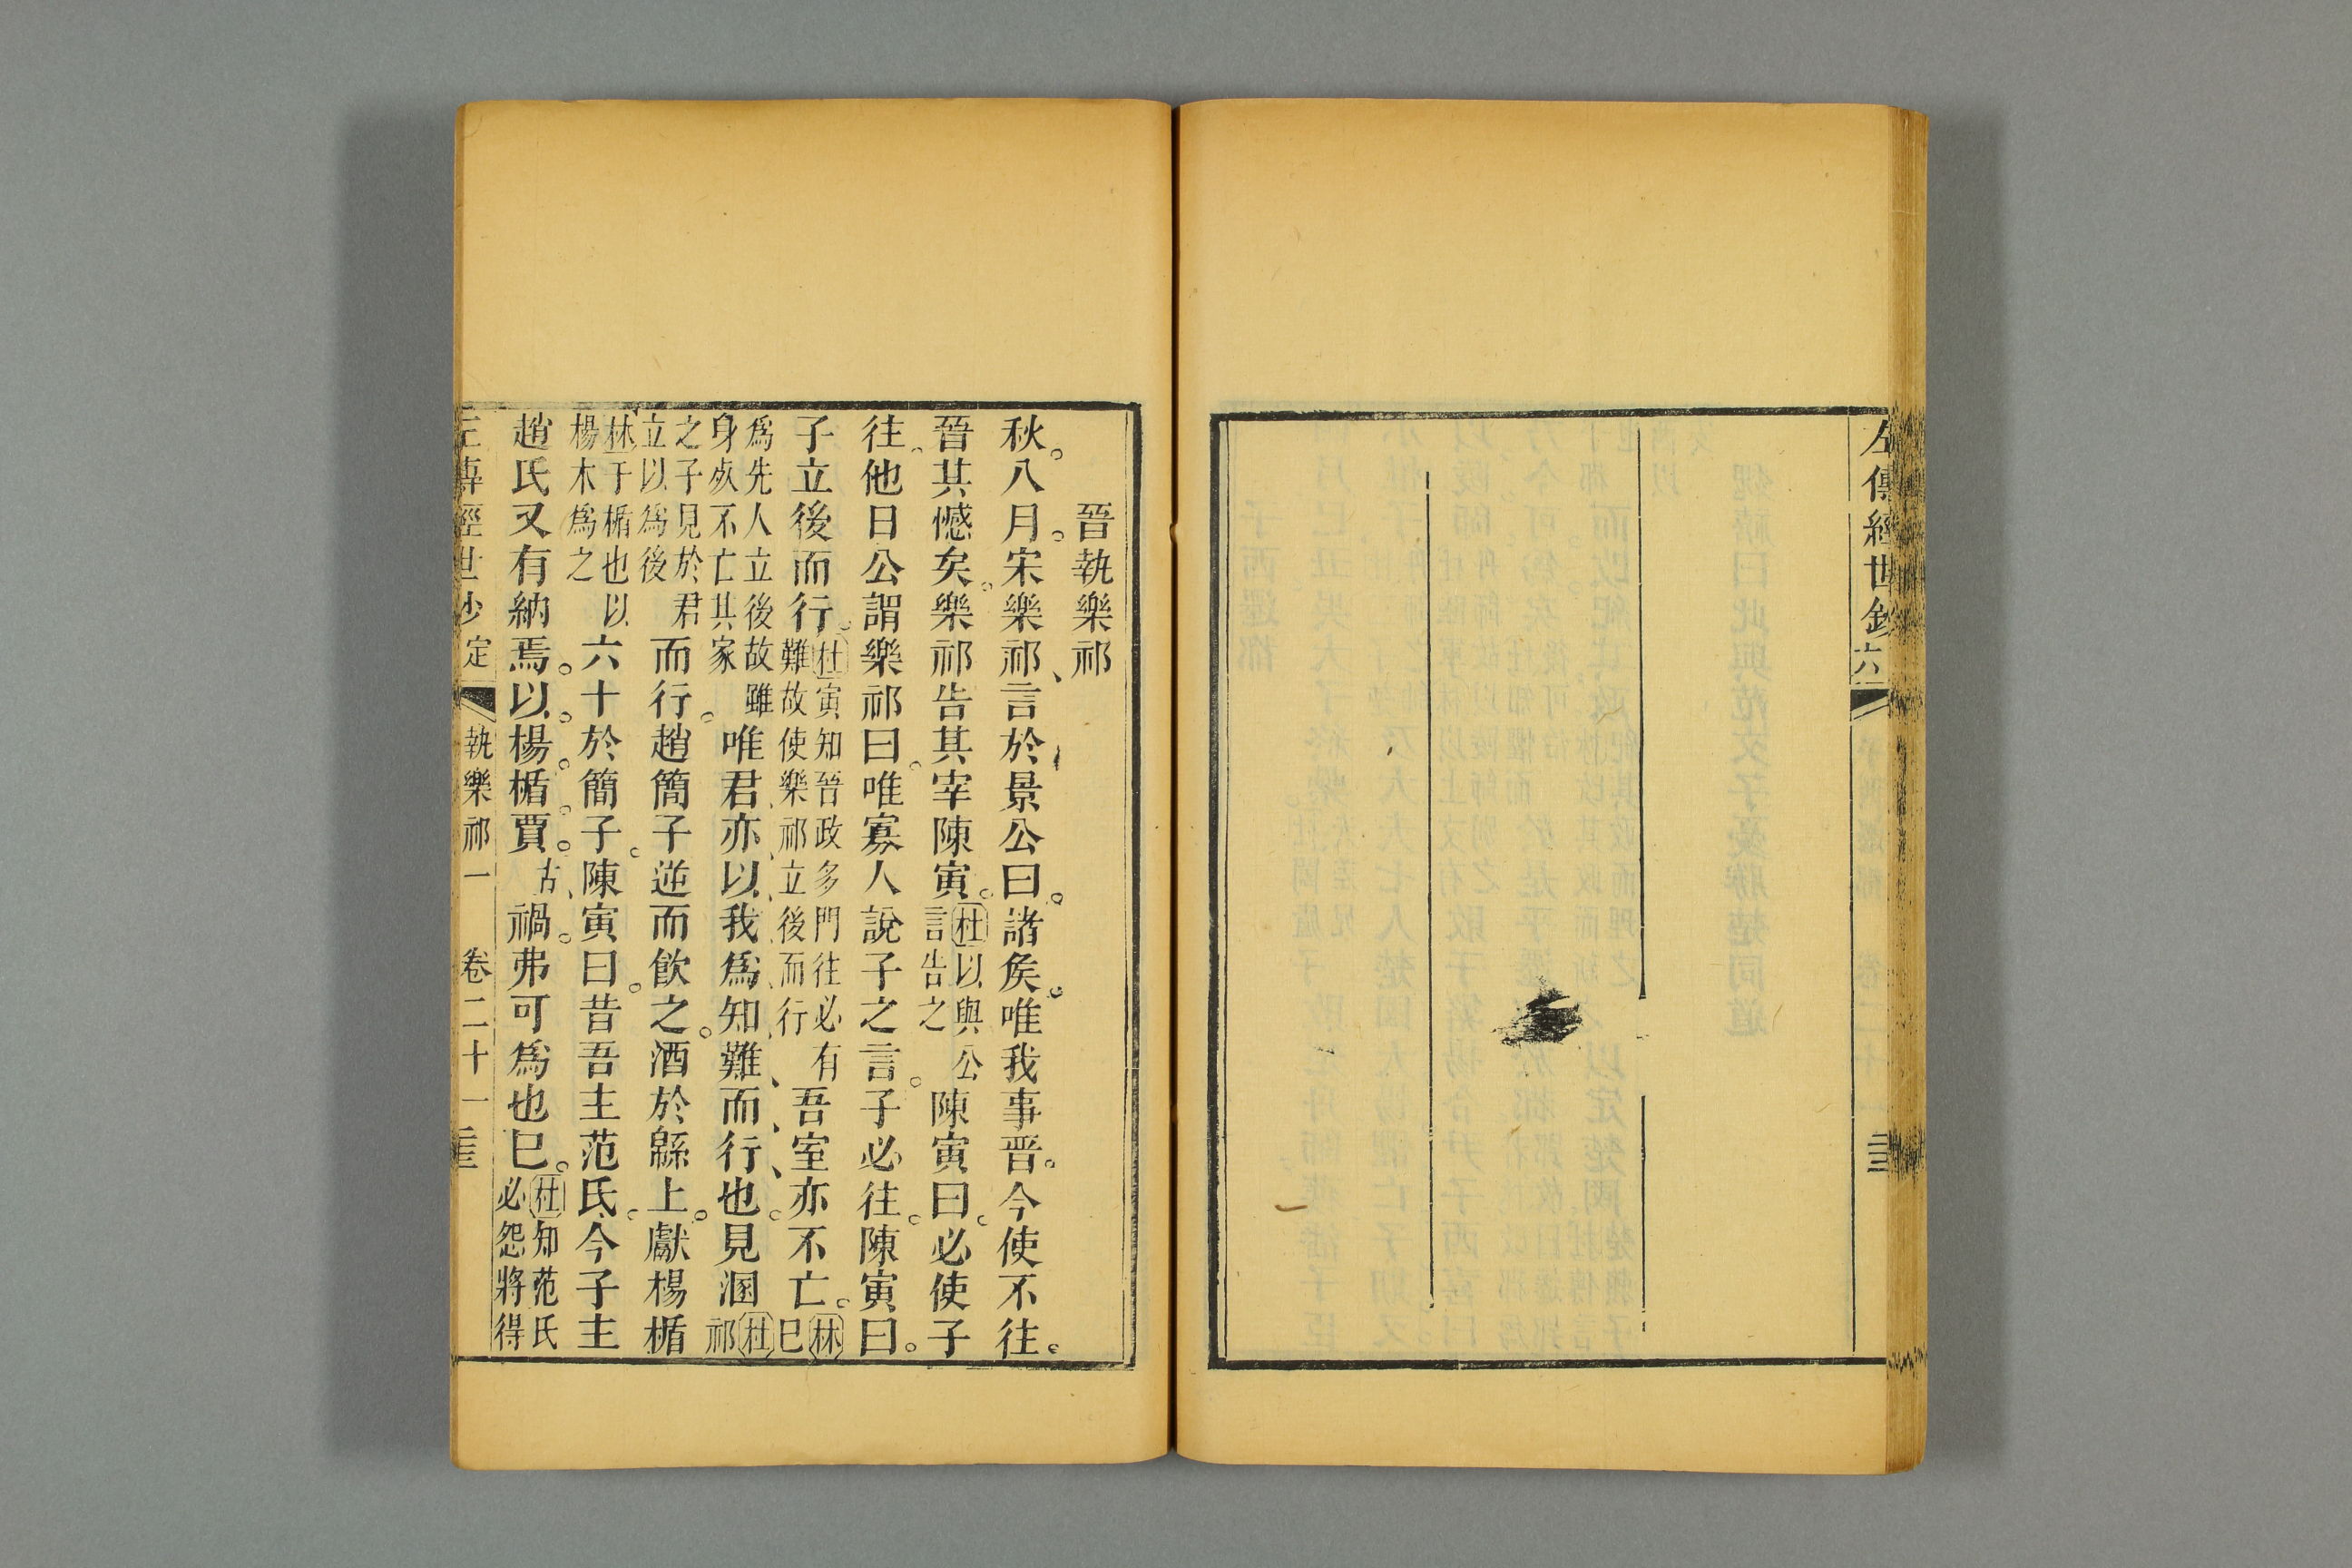 左傳經世鈔 六
晉執樂祁
秋八月宋樂祁言於景公曰諸矦唯我事晉今使不往
晉其憾矣樂祁告其宰陳寅杜以與公言告之陳寅曰必使子
往他日公謂樂祁曰唯寡人說子之言子必往陳寅曰
子立後而行杜寅知晉政多門往必有難故使樂祁立後而行吾室亦不亡林已
為先人立後故雖身歿不亡其家唯君亦以我為知難而行也見溷杜祁
之子見於君立以為後而行趙簡子逆而飲之酒於緜上獻楊楯
林于楯也以楊木為之六十於簡子陳寅曰昔吾主范氏今子主
趙氏又有納焉以楊楯賈古禍弗可為也已杜知范氏必怨將得
左傳經世鈔 定 執樂祁一 卷二十一